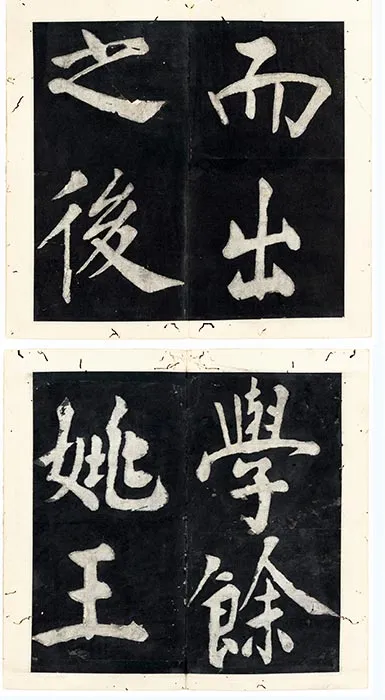 而出
之後
學餘
姚王